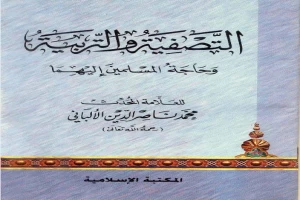 التصفية والتربية
وحاجة المسلمين إليهما
للعلامة المحدث
محمد ناصر الدين الألباني
(رحمه الله تعالى)
المكتبة الإسلامية